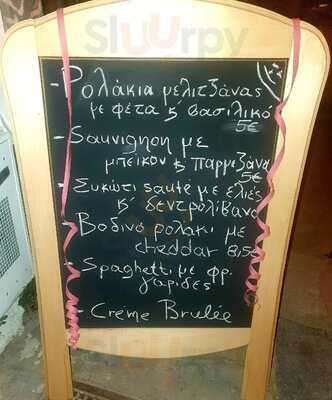 Sluurpy
- Ρολάκια μελιτζάνας
με φέτα κ' βασιλικό
5€
- Sauvignon με
μπέικον κ παρμεζάνα
5€
- Συκώτι sauté με ελιές
κ' δεντρολίβανο
- Βοδινό ρολάκι με
cheddar 8,5€
- Spaghetti με φρ.
γαρίδες
- Crème Brulée